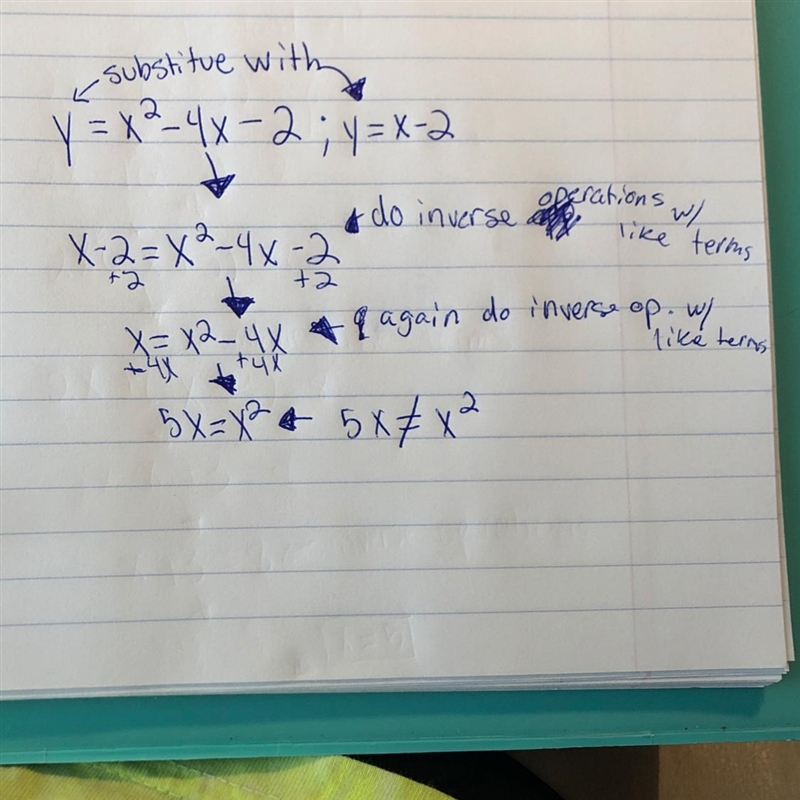 substitue with
y = x² - 4x - 2 ; y = x - 2
do inverse operations w/
like terms
x - 2 = x² - 4x - 2
+2 +2
again do inverse op. w/
like terms
x = x² - 4x
+4x +4x
5x = x² 5x ≠ x²